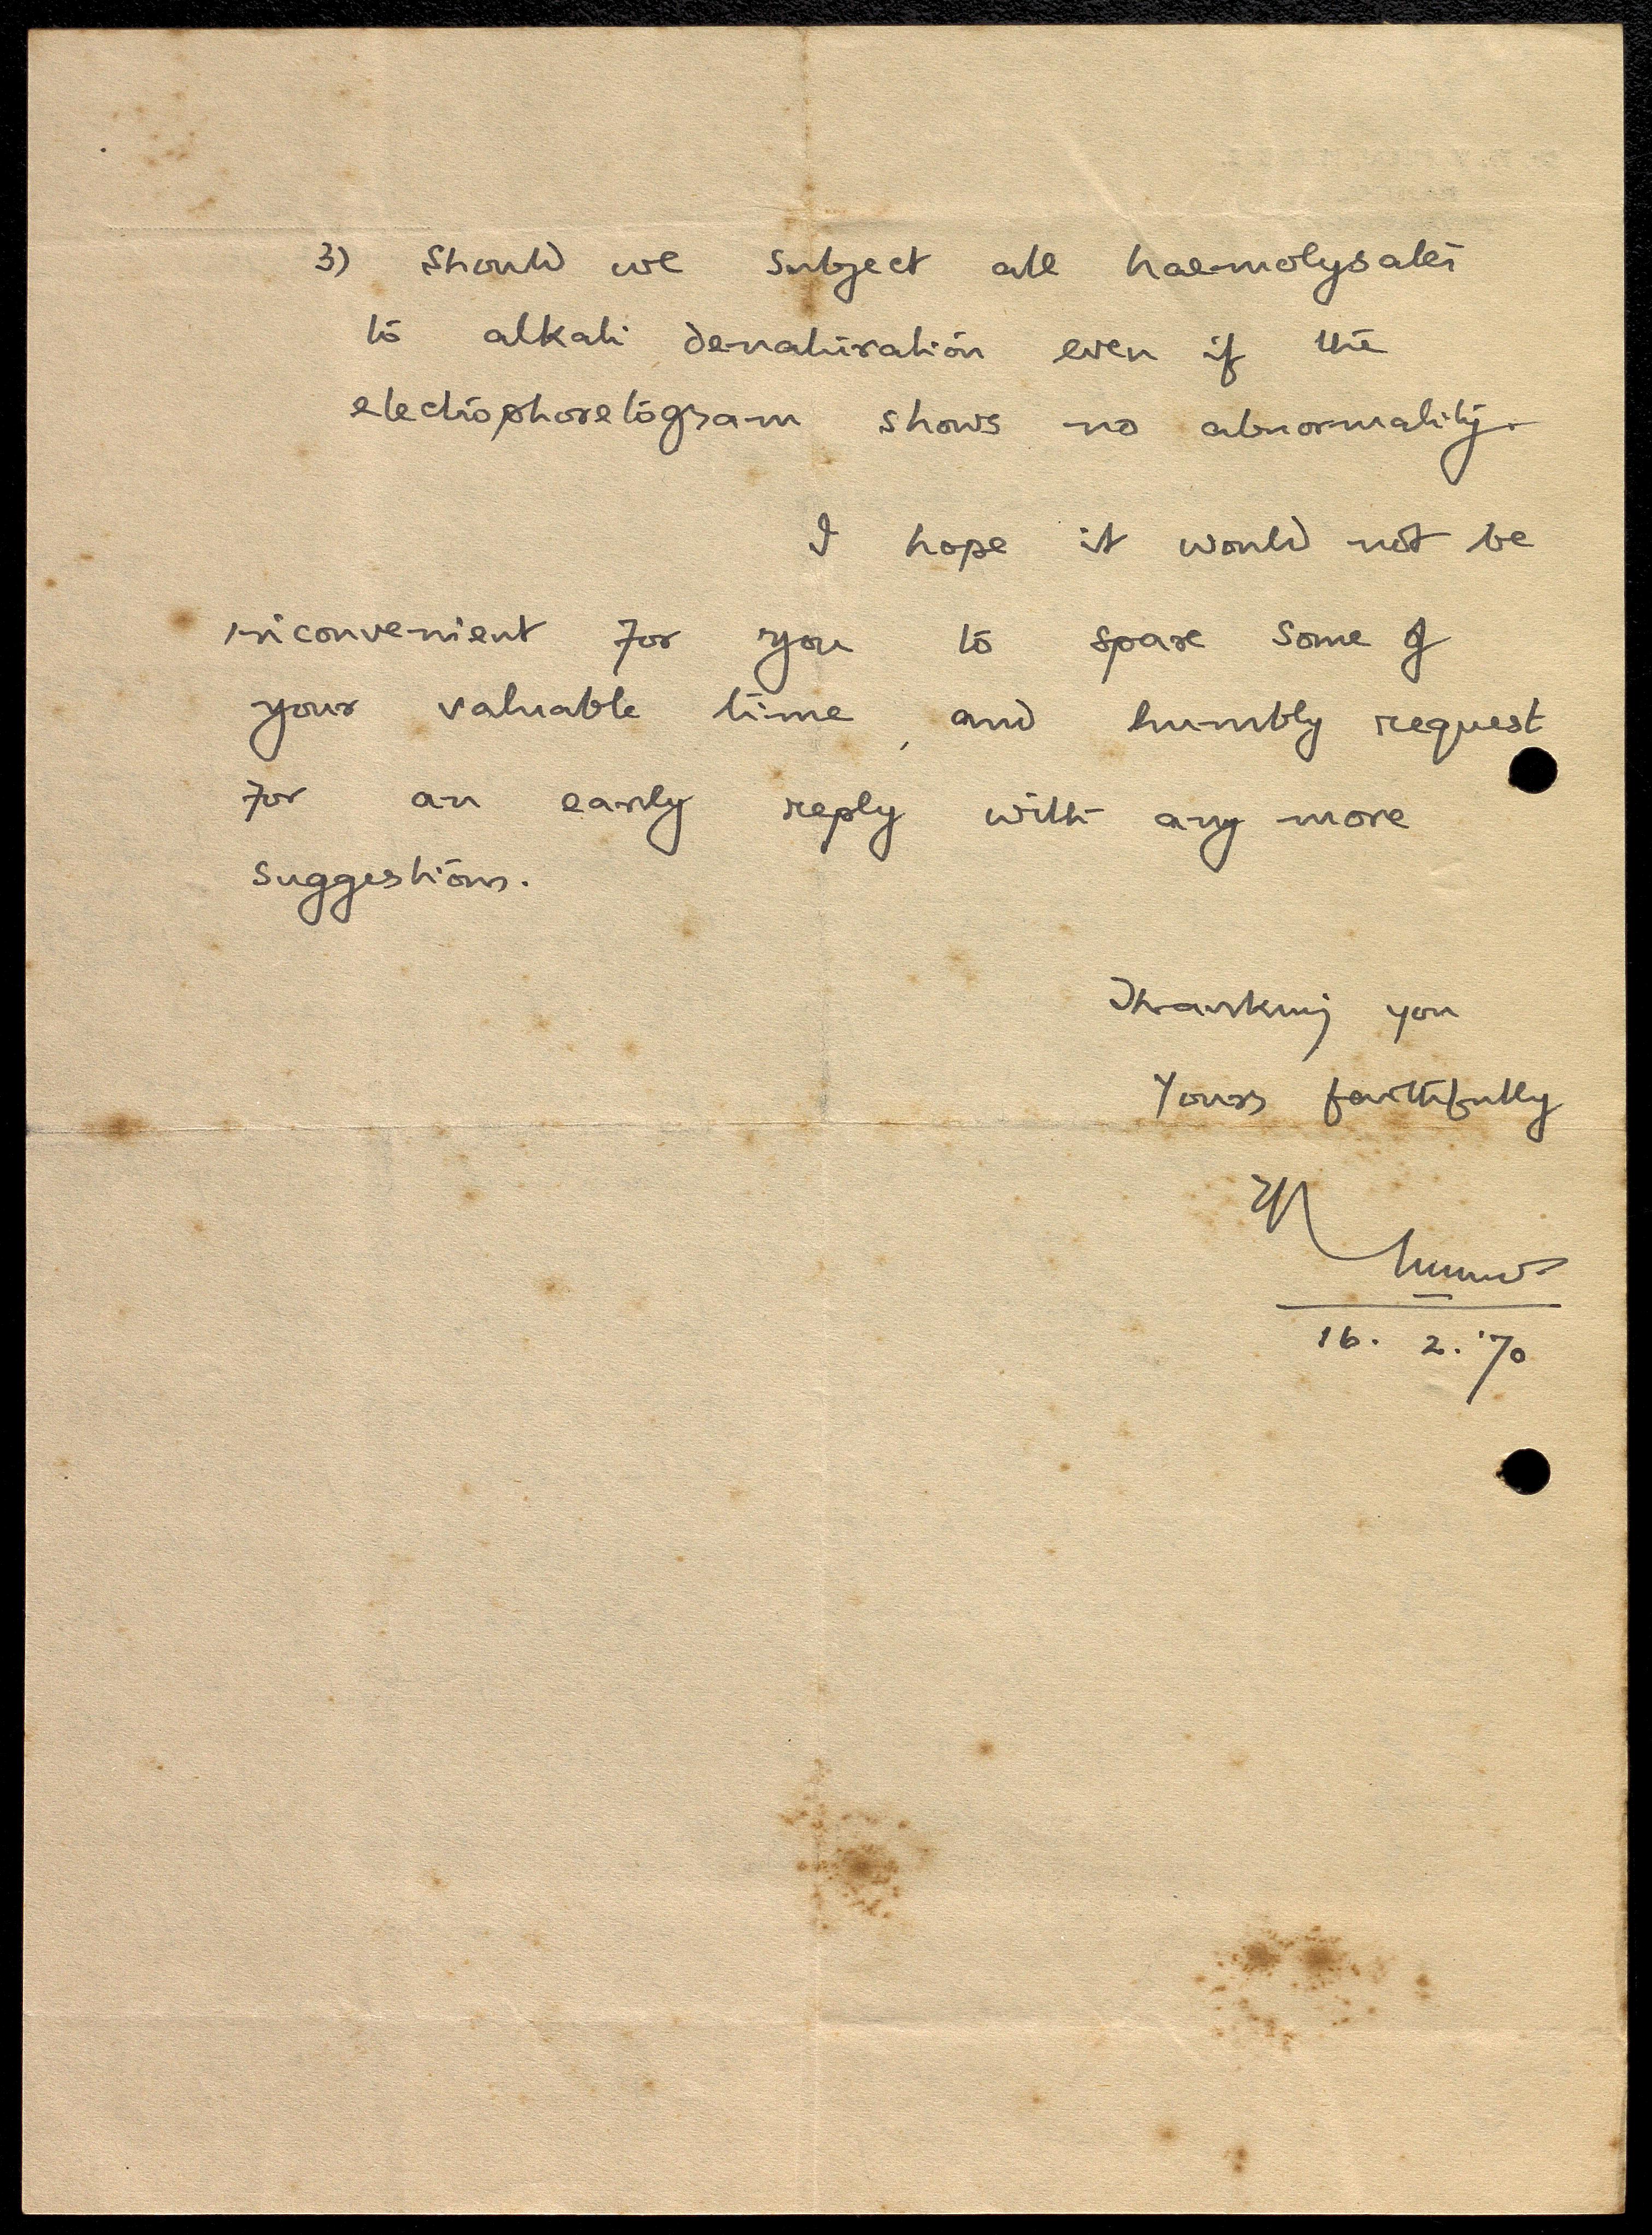 3) Should we subject all haemolysates
to alkali denaturation even if the
electrophoretogram shows no abnormality.
I hope it would not be
inconvenient for you to spare some of
your valuable time, and humbly request
for an early reply with any more
suggestions.
Thanking you
Yours faithfully
16. 2. '70